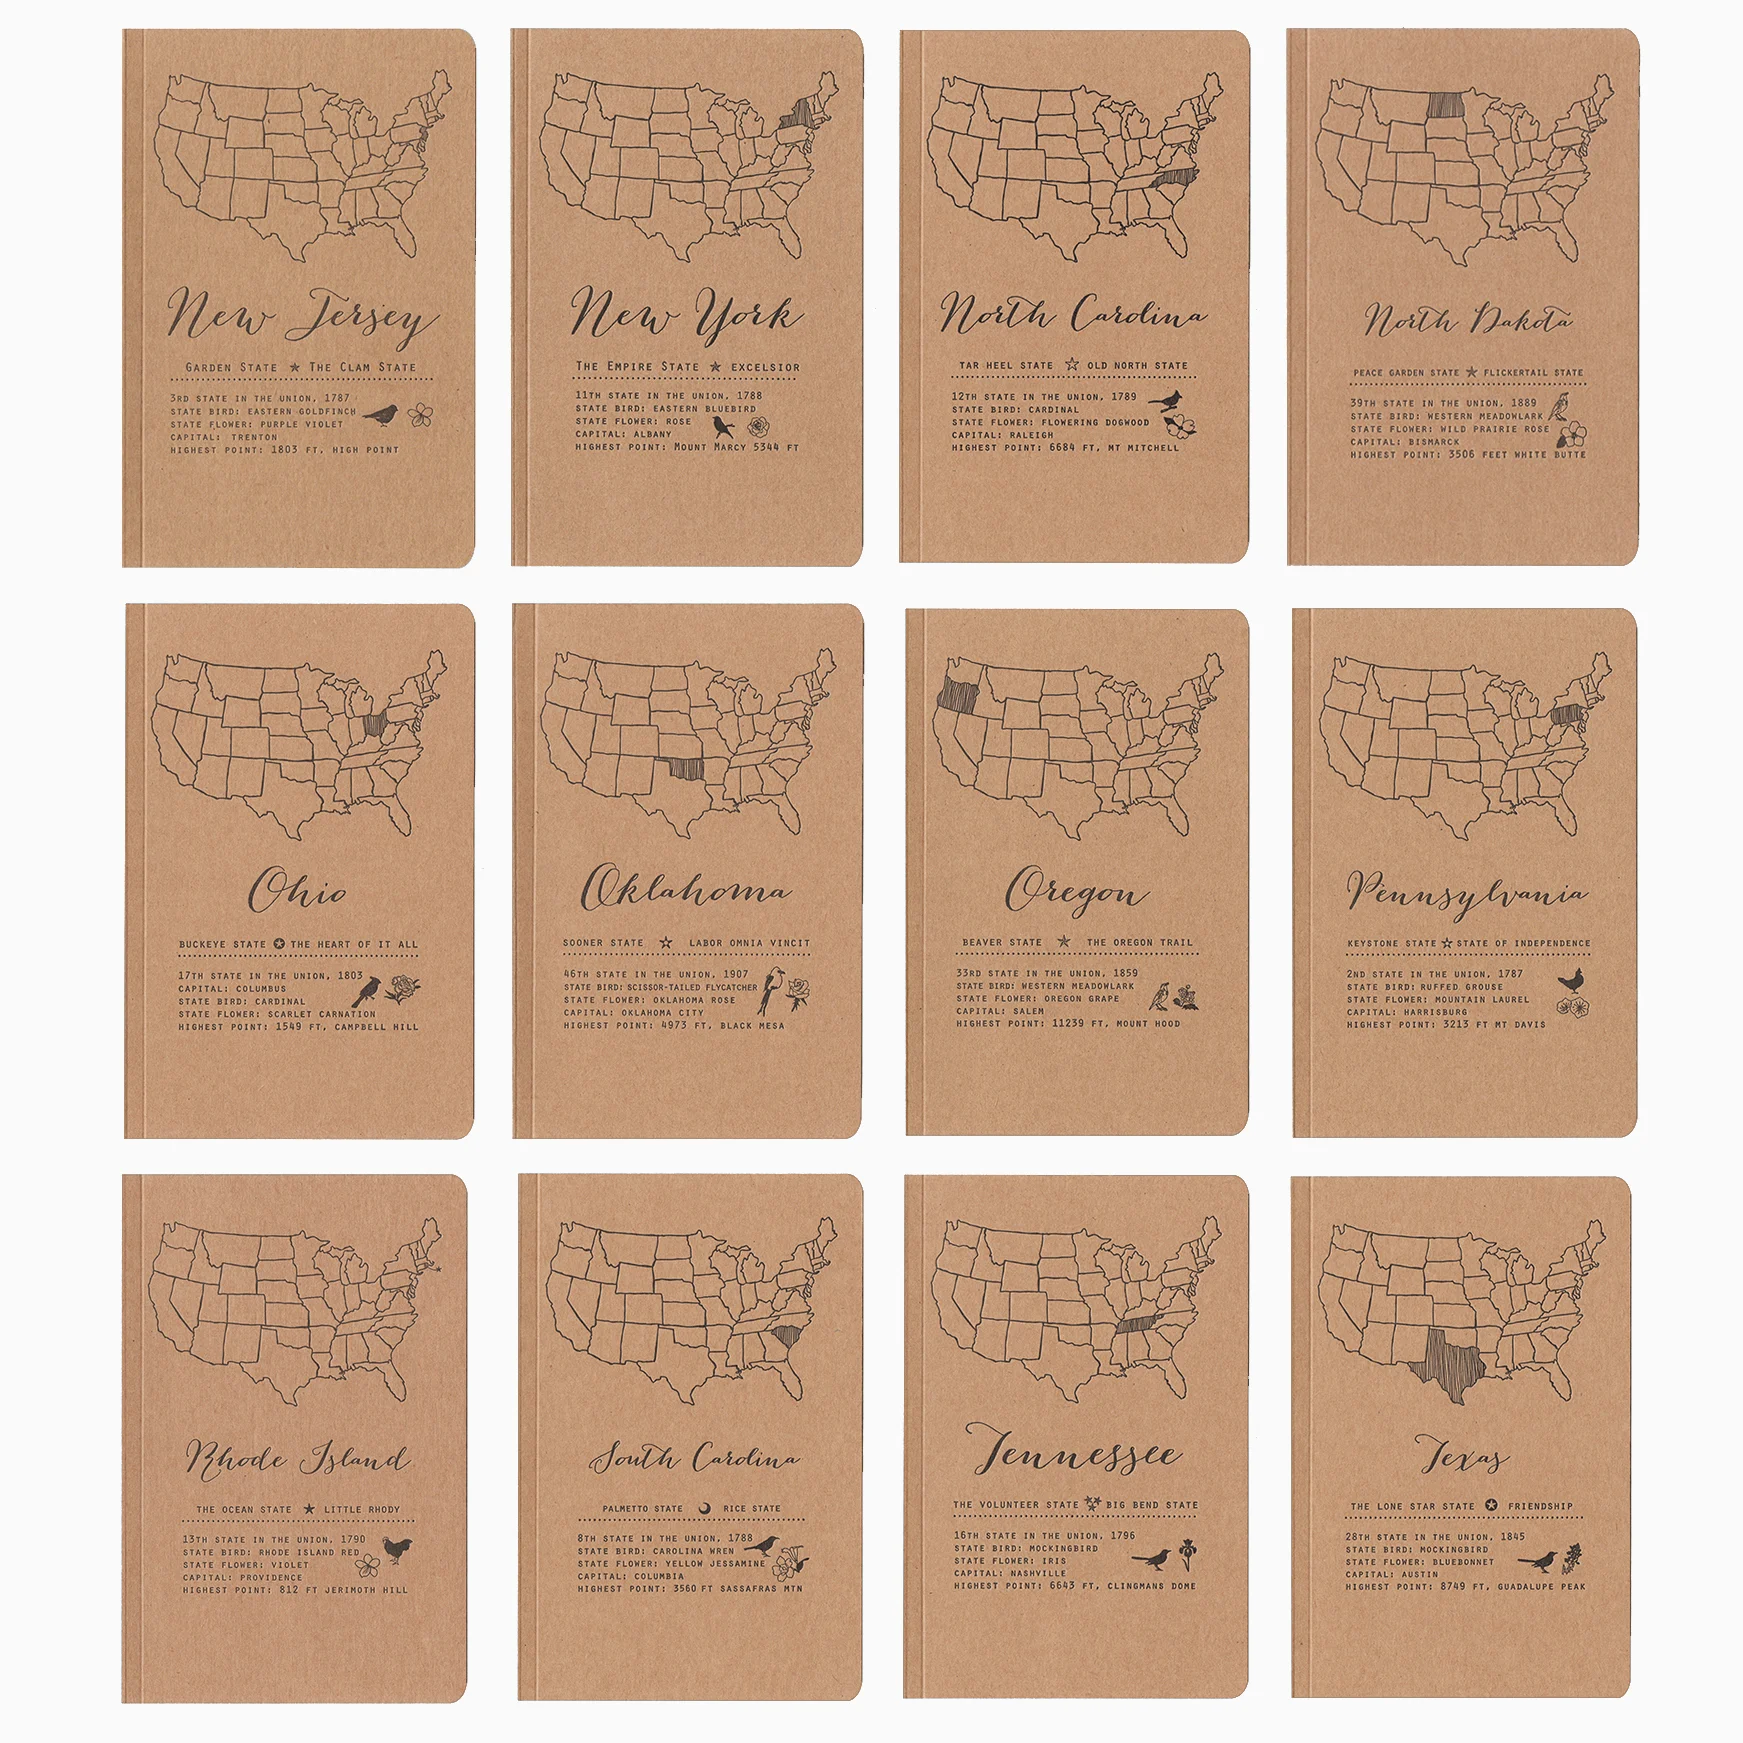 New Jersey
GARDEN STATE ★ THE CLAM STATE
3RD STATE IN THE UNION, 1787
STATE BIRD: EASTERN GOLDFINCH
STATE FLOWER: PURPLE VIOLET
CAPITAL: TRENTON
HIGHEST POINT: 1803 FT, HIGH POINT
New York
THE EMPIRE STATE ★ EXCELSIOR
11TH STATE IN THE UNION, 1788
STATE BIRD: EASTERN BLUEBIRD
STATE FLOWER: ROSE
CAPITAL: ALBANY
HIGHEST POINT: MOUNT MARCY 5344 FT
North Carolina
TAR HEEL STATE ☆ OLD NORTH STATE
12TH STATE IN THE UNION, 1789
STATE BIRD: CARDINAL
STATE FLOWER: FLOWERING DOGWOOD
CAPITAL: RALEIGH
HIGHEST POINT: 6684 FT, MT MITCHELL
North Dakota
PEACE GARDEN STATE ★ FLICKERTAIL STATE
39TH STATE IN THE UNION, 1889
STATE BIRD: WESTERN MEADOWLARK
STATE FLOWER: WILD PRAIRIE ROSE
CAPITAL: BISMARCK
HIGHEST POINT: 3506 FEET WHITE BUTTE
Ohio
BUCKEYE STATE ✪ THE HEART OF IT ALL
17TH STATE IN THE UNION, 1803
CAPITAL: COLUMBUS
STATE BIRD: CARDINAL
STATE FLOWER: SCARLET CARNATION
HIGHEST POINT: 1549 FT, CAMPBELL HILL
Oklahoma
SOONER STATE ☆ LABOR OMNIA VINCIT
46TH STATE IN THE UNION, 1907
STATE BIRD: SCISSOR-TAILED FLYCATCHER
STATE FLOWER: OKLAHOMA ROSE
CAPITAL: OKLAHOMA CITY
HIGHEST POINT: 4973 FT, BLACK MESA
Oregon
BEAVER STATE ★ THE OREGON TRAIL
33RD STATE IN THE UNION, 1859
STATE BIRD: WESTERN MEADOWLARK
STATE FLOWER: OREGON GRAPE
CAPITAL: SALEM
HIGHEST POINT: 11239 FT, MOUNT HOOD
Pennsylvania
KEYSTONE STATE ☆ STATE OF INDEPENDENCE
2ND STATE IN THE UNION, 1787
STATE BIRD: RUFFED GROUSE
STATE FLOWER: MOUNTAIN LAUREL
CAPITAL: HARRISBURG
HIGHEST POINT: 3213 FT MT DAVIS
Rhode Island
THE OCEAN STATE ★ LITTLE RHODY
13TH STATE IN THE UNION, 1790
STATE BIRD: RHODE ISLAND RED
STATE FLOWER: VIOLET
CAPITAL: PROVIDENCE
HIGHEST POINT: 812 FT JERIMOTH HILL
South Carolina
PALMETTO STATE ☽ RICE STATE
8TH STATE IN THE UNION, 1788
STATE BIRD: CAROLINA WREN
STATE FLOWER: YELLOW JESSAMINE
CAPITAL: COLUMBIA
HIGHEST POINT: 3560 FT SASSAFRAS MTN
Tennessee
THE VOLUNTEER STATE BIG BEND STATE
16TH STATE IN THE UNION, 1796
STATE BIRD: MOCKINGBIRD
STATE FLOWER: IRIS
CAPITAL: NASHVILLE
HIGHEST POINT: 6643 FT, CLINGMANS DOME
Texas
THE LONE STAR STATE ✪ FRIENDSHIP
28TH STATE IN THE UNION, 1845
STATE BIRD: MOCKINGBIRD
STATE FLOWER: BLUEBONNET
CAPITAL: AUSTIN
HIGHEST POINT: 8749 FT, GUADALUPE PEAK